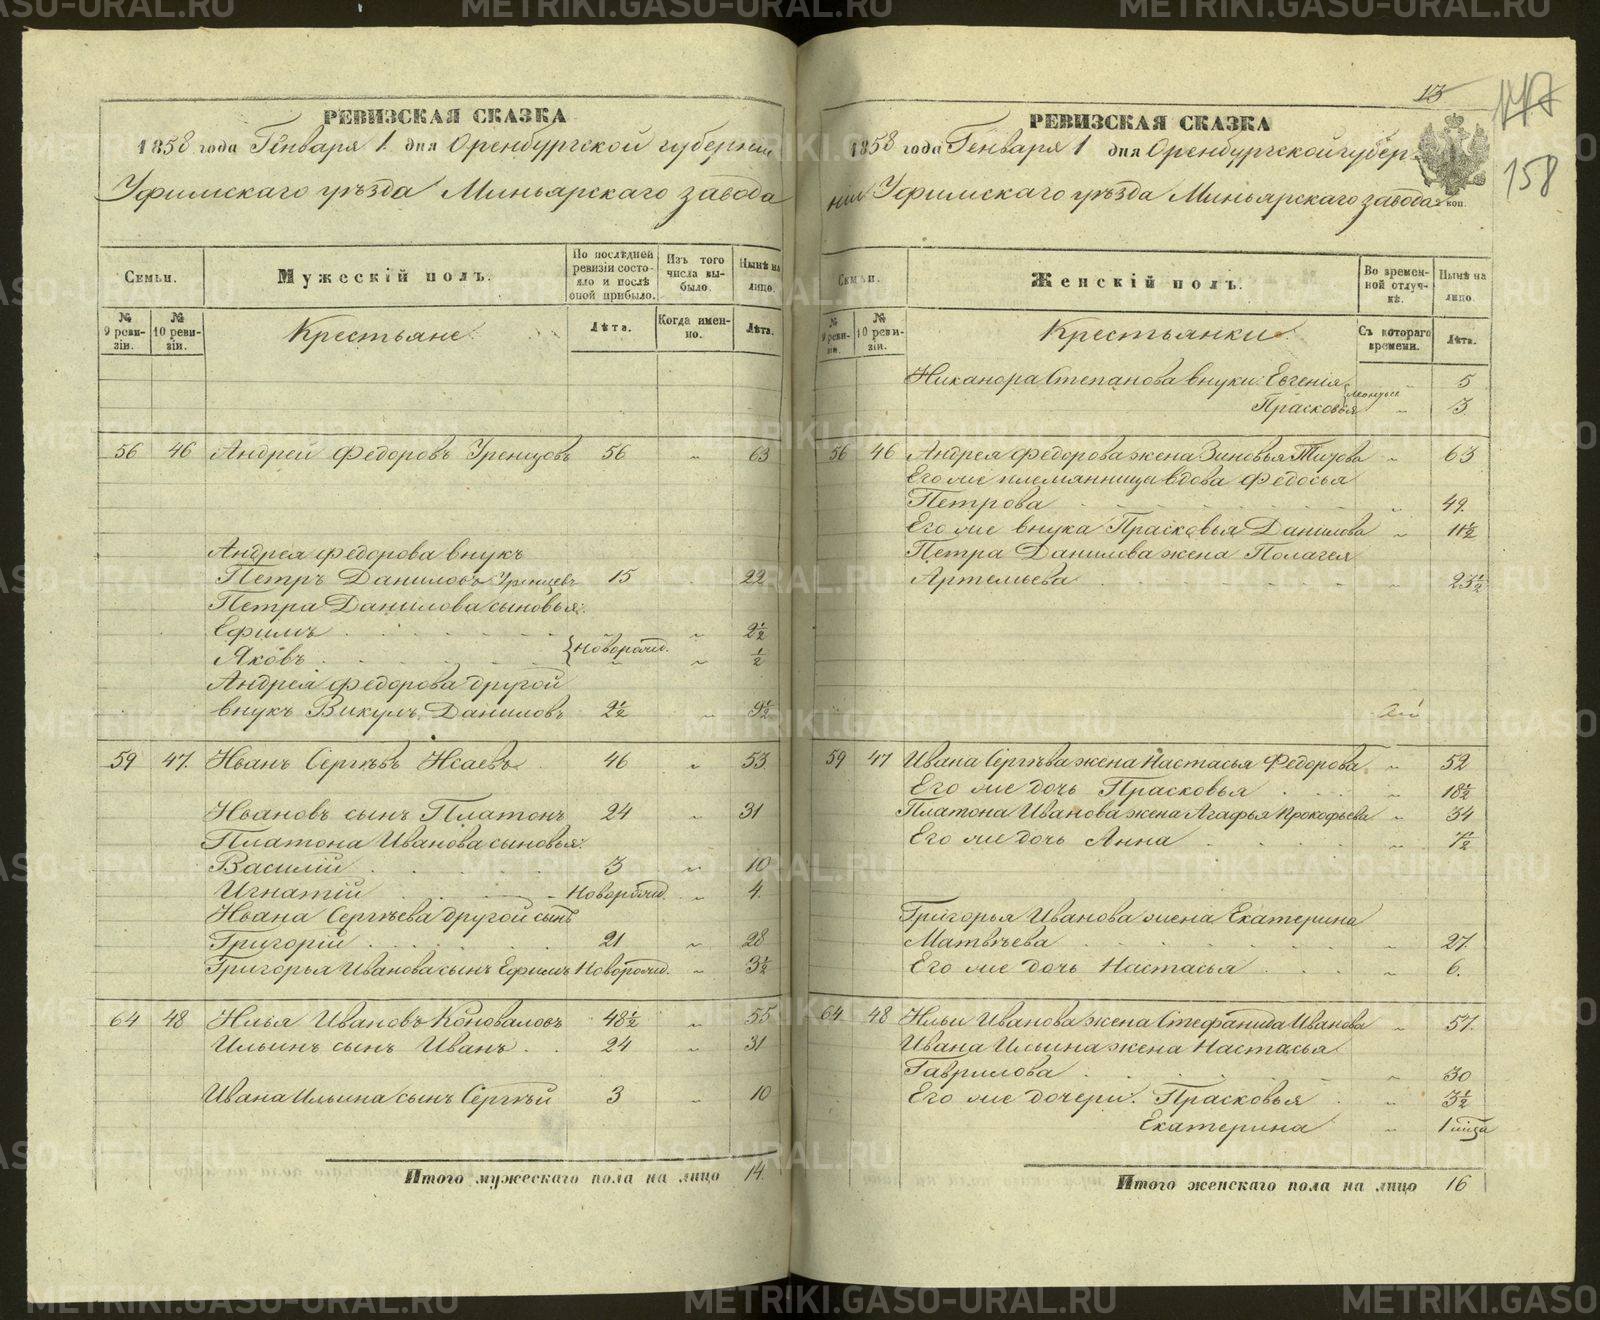 РЕВИЗСКАЯ СКАЗКА
1858 года Генваря 1 дня Оренбургской губернии
Уфимскаго уѣзда Миньярскаго завода
Семьи.
Мужескій полъ.
По послѣдней ревизіи состояло и послѣ оной прибыло.
Изъ того числа выбыло.
Нынѣ на лицо.
№ 9 ревизіи.
№ 10 ревизіи.
Крестьяне
Лѣта.
Когда именно.
Лѣта.
56 46 Андрей Федоровъ Уренцовъ 56 „ 63
Андрея Федорова внукъ
Петръ Даниловъ Уренцевъ 15 22
Петра Данилова сыновья:
Ефимъ „ 2½
Новорожд.
Яковъ „ ½
Андрея Федорова другой
внукъ Викулъ Даниловъ 2½ „ 9½
59 47. Иванъ Сергѣевъ Исаевъ 46 „ 53
Ивановъ сынъ Платонъ 24 „ 31
Платона Иванова сыновья:
Василій 3 „ 10
Игнатій Новорожд. „ 4.
Ивана Сергѣева другой сынъ
Григорій 21 „ 28
Григорья Иванова сынъ Ефимъ Новорожд. „ 3½
64 48 Илья Ивановъ Коноваловъ 48½ „ 55
Ильинъ сынъ Иванъ 24 „ 31
Ивана Ильина сынъ Сергѣй 3 „ 10
Итого мужескаго пола на лицо 14.
13
158
РЕВИЗСКАЯ СКАЗКА
1858 года Генваря 1 дня Оренбургской губер-
ніи Уфимскаго уѣзда Миньярскаго завода
коп.
Семьи.
Женскій полъ.
Во временной отлучкѣ.
Нынѣ на лицо.
№ 9 ревизіи.
№ 10 ревизіи.
Крестьянки
Съ котораго времени.
Лѣта.
Никанора Степанова внуки: Евгенія „ 5
Прасковья „ 3
56 46 Андрея Федорова жена Зиновья Титова „ 63
Его же племянница вдова Федосья
Петрова „ 49.
Его же внука Прасковья Данилова „ 11½
Петра Данилова жена Полагея
Артемьева „ 23½
59 47 Ивана Сергѣева жена Настасья Федорова „ 52
Его же дочь Прасковья „ 18½
Платона Иванова жена Агафья Прокофьева „ 34
Его же дочь Анна „ 7½
Григорья Иванова жена Екатерина
Матвѣева „ 27.
Его же дочь Настасья „ 6.
64 48 Ильи Иванова жена Стефанида Иванова „ 57.
Ивана Ильина жена Настасья
Гаврилова „ 30
Его же дочери: Прасковья „ 3½
Екатерина „ 1
Итого женскаго пола на лицо 16
METRIKI.GASO-URAL.RU